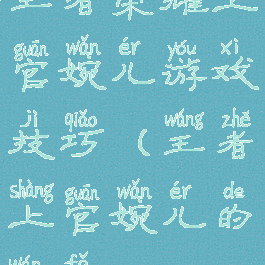 王者荣耀上
guān wǎn ér yóu xì
官婉儿游戏
jì qiǎo wáng zhě
技巧（王者
shàng guān wǎn ér de
上官婉儿的
wán fǎ